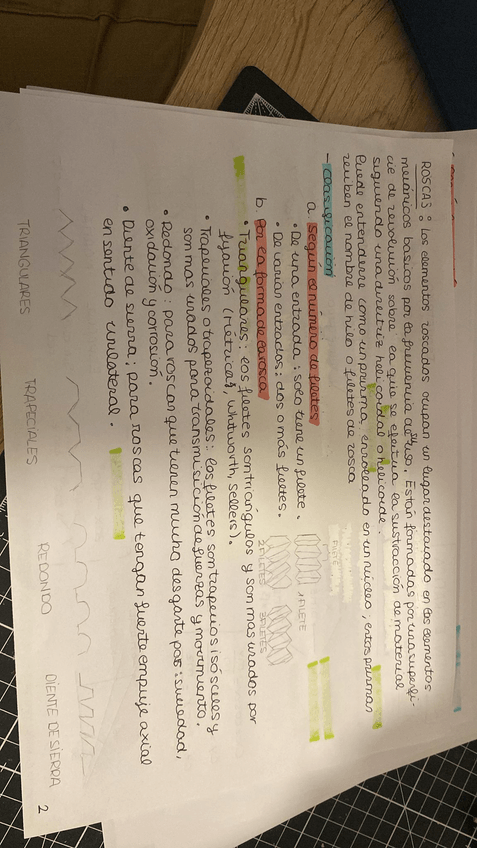 ROSCAS: los elementos roscados ocupan un lugar destacado en los elementos
mecánicos basicos por la frecuencia de uso. Están formadas por una superfi-
cie de revolución sobre la que se efectua la sustracción de material
siguiendo una directriz helicoidal o helicoide.
Puede entenderse como un prisma, enrollado en un núcleo; estos prismas
reciben el nombre de hilo o filetes de rosca
- Clasificación
a. Según el número de filetes
• De una entrada: solo tiene un filete.
• De varias entradas: dos o más filetes.
1 FILETE
2 FILETES
3 FILETES
b. Por la forma de la rosca
• Triangulares: los filetes son triángulos y son mas usados por
fijación (métricas, Whitworth, Sellers).
• Trapeciales o trapezoidales: los filetes son trapecios isósceles y
son mas usados para transmisición de fuerzas y movimiento.
• Redondo: para roscas que tienen mucho desgaste por: suciedad,
oxidación y corrosión.
• Diente de sierra: para roscas que tengan fuerte empuje axial
en sentido unilateral.
TRIANGULARES TRAPECIALES REDONDO DIENTE DE SIERRA
2